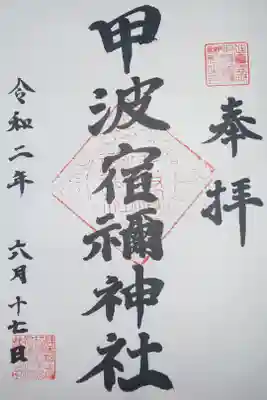 奉拝
甲波宿禰神社
令和二年
六月十七日